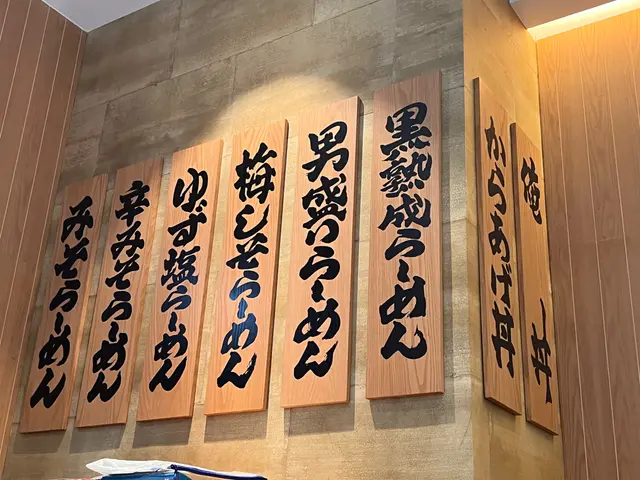 俺 丼
からあげ丼
黒熟成らーめん
男盛りらーめん
梅しそらーめん
ゆず塩らーめん
辛みそらーめん
みそらーめん